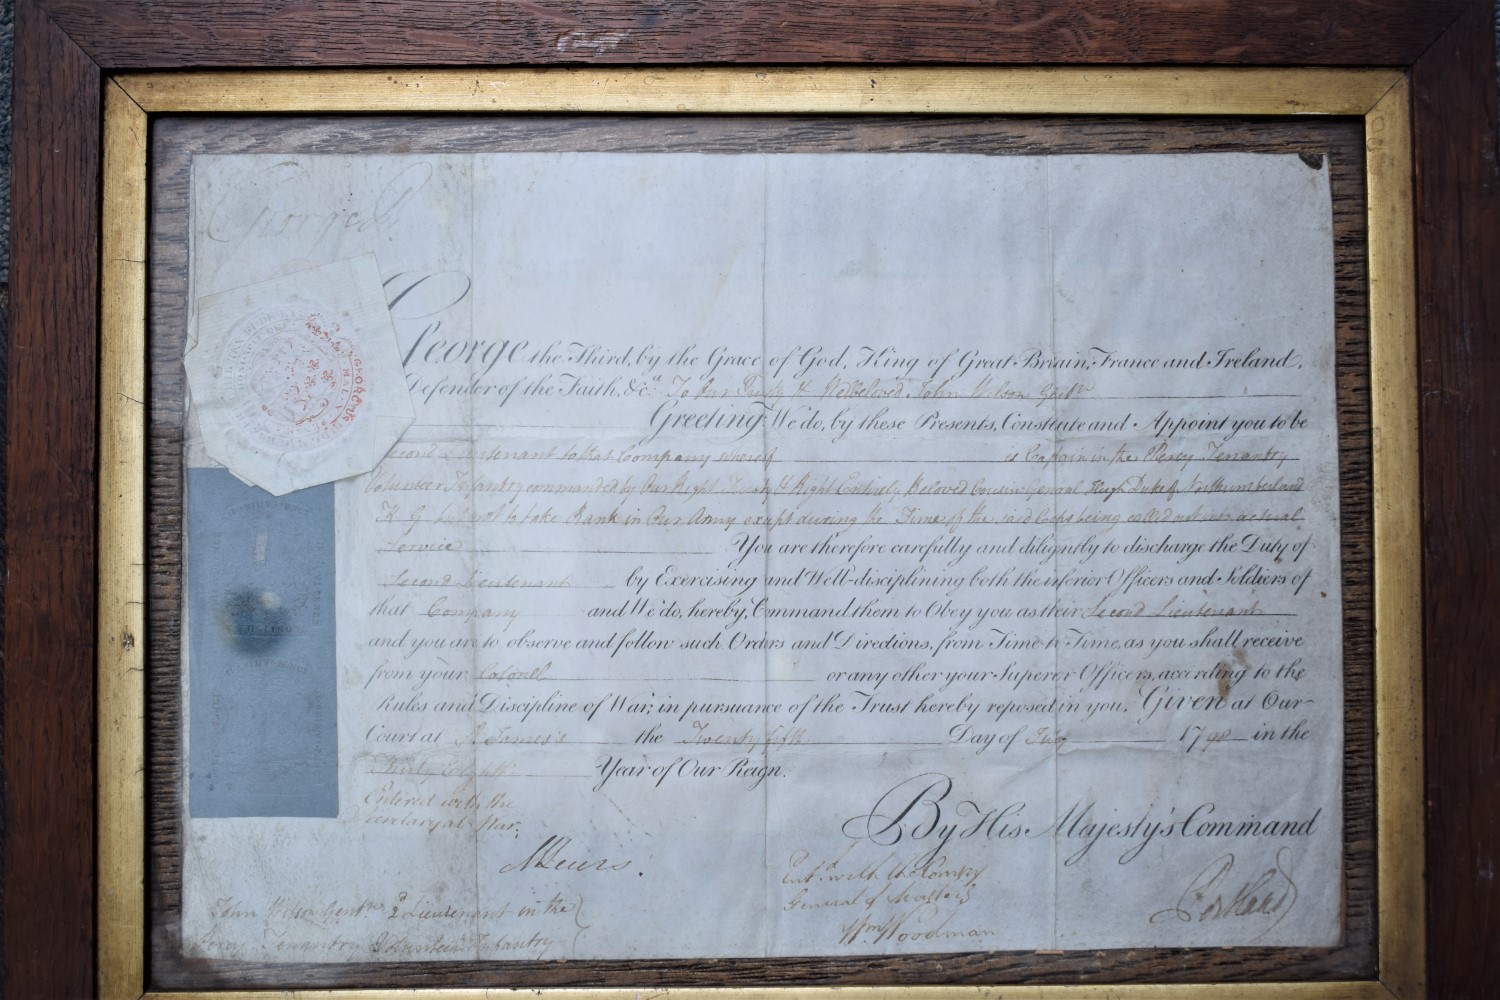 George R
George the Third, by the Grace of God, King of Great-Britain, France and Ireland,
Defender of the Faith, &c.a To Our Trusty & Welbeloved John Wilson Gentn
Greeting: We do, by these Presents, Constitute and Appoint you to be
Second Lieutenant to that Company whereof is Captain in the Percy Tenantry
Volunteer Infantry commanded by Our Right Trusty & Right Entirely Beloved Cousin General Hugh Duke of Northumberland
K G but not to take Rank in Our Army except during the Time of the said Corps being called out into actual
Service You are therefore carefully and diligently to discharge the Duty of
Second Lieutenant by Exercising and Well-disciplining both the inferior Officers and Soldiers of
that Company and We do, hereby, Command them to Obey you as their Second Lieutenant
and you are to observe and follow such Orders and Directions, from Time to Time, as you shall receive
from your Colonel or any other your Superior Officers, according to the
Rules and Discipline of War; in pursuance of the Trust hereby reposed in you. Given at Our
Court at St James's the Twenty fifth Day of 1798 in the
Thirty Eighth Year of Our Reign.
Entered with the
Secretary at War.
By His Majesty's Command
MLewis.
Entd with the Comsy
General of Musters
Wm Woodman
Portland
John Wilson Gentn 2d Lieutenant in the
Percy Tenantry Volunteer Infantry